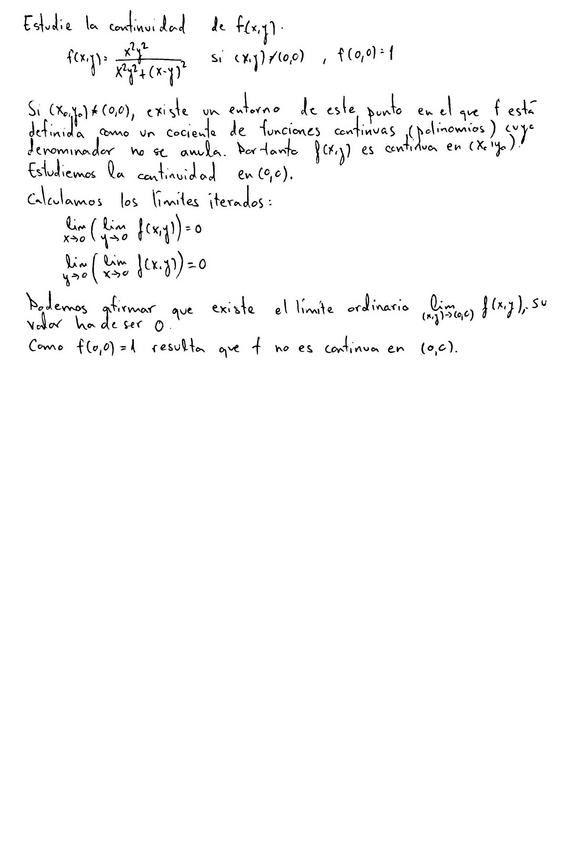 Estudie la continuidad de f(x,y).
f(x,y)= x²y² / (x²y²+(x-y)²) si (x,y)≠(0,0) , f(0,0)=1
Si (x₀,y₀)≠(0,0), existe un entorno de este punto en el que f está
definida como un cociente de funciones continuas (polinomios) cuyo
denominador no se anula. Por tanto f(x,y) es continua en (x₀,y₀).
Estudiemos la continuidad en (0,0).
Calculamos los límites iterados:
lim x→0 ( lim y→0 f(x,y)) = 0
lim y→0 ( lim x→0 f(x,y)) = 0
Podemos afirmar que existe el límite ordinario lim (x,y)→(0,0) f(x,y), su
valor ha de ser 0.
Como f(0,0)=1 resulta que f no es continua en (0,0).